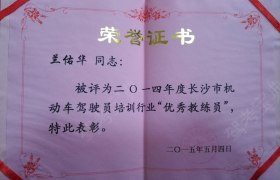 荣誉证书
兰佑华 同志：
被评为二〇一四年度长沙市机
动车驾驶员培训行业“优秀教练员”，
特此表彰。
二〇一五年五月四日